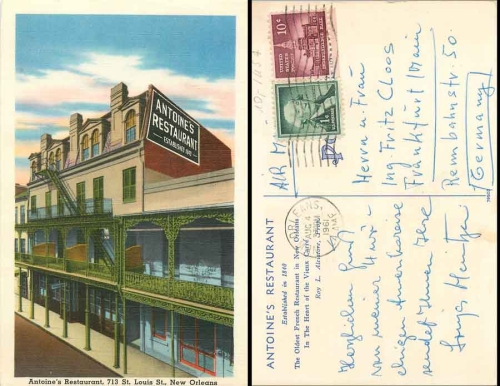 ANTOINE'S
RESTAURANT
ESTABLISHED 1840
Antoine's Restaurant, 713 St. Louis St., New Orleans
ANTOINE'S RESTAURANT
Established in 1840
The Oldest French Restaurant in New Orleans
In The Heart of the Vieux Carré
Roy L. Alciatore, Propr.
Herzlichen Gruß
von meiner
Amerikareise
sendet Ihnen Ihre
ORLEANS,
AUG 4
1961
10¢
UNITED
STATES
AIR
Herrn u. Frau
Ing. Fritz Cloos
Frankfurt/Main
Rennbahnstr. 50
Germany